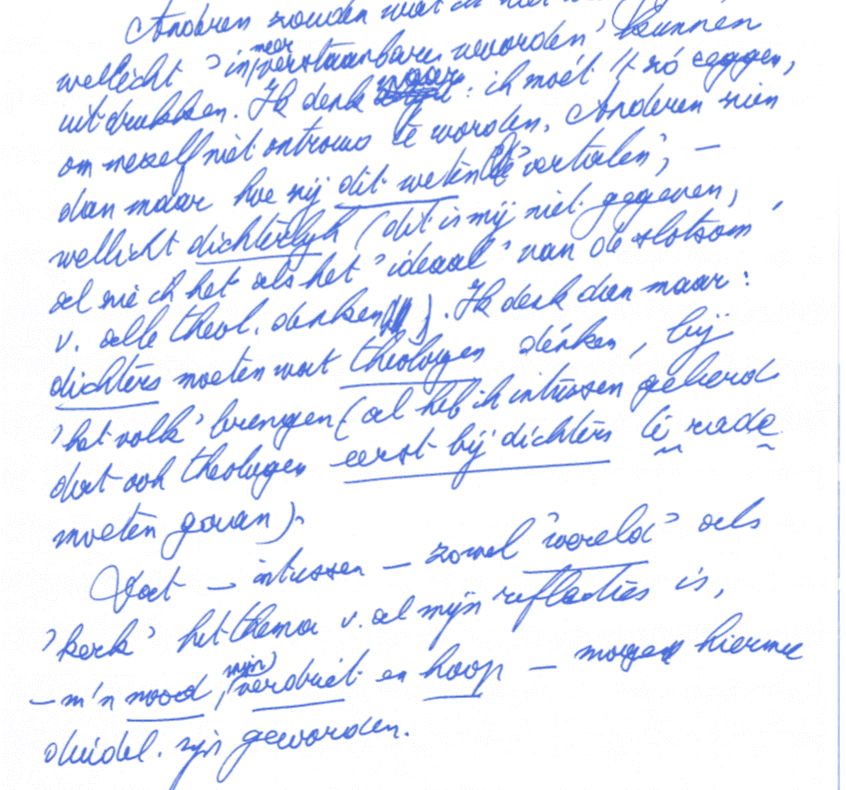 Anderen zouden wat ik niet
wellicht 'in meer verstaanbare woorden' kunnen
uitdrukken. Ik denk maar: ik moét 't zó zeggen,
om mezelf niet ontrouw te worden. Anderen zien
dan maar hoe zij dit weten 'vertalen', –
wellicht dichterlijk (dit is mij niet gegeven,
al zie ik het als het 'ideaal' van de slotsom
v. alle theol. denken). Ik denk dan maar:
dichters moeten wat theologen dénken, bij
'het volk' brengen (al heb ik intussen geleerd
dat ook theologen eerst bij dichters te rade
moeten gaan).
Dat – intussen – zowel 'wereld' als
'kerk' het thema v. al mijn reflecties is,
– m'n nood, mijn verdriet en hoop – moge hiermee
duidel. zijn geworden.